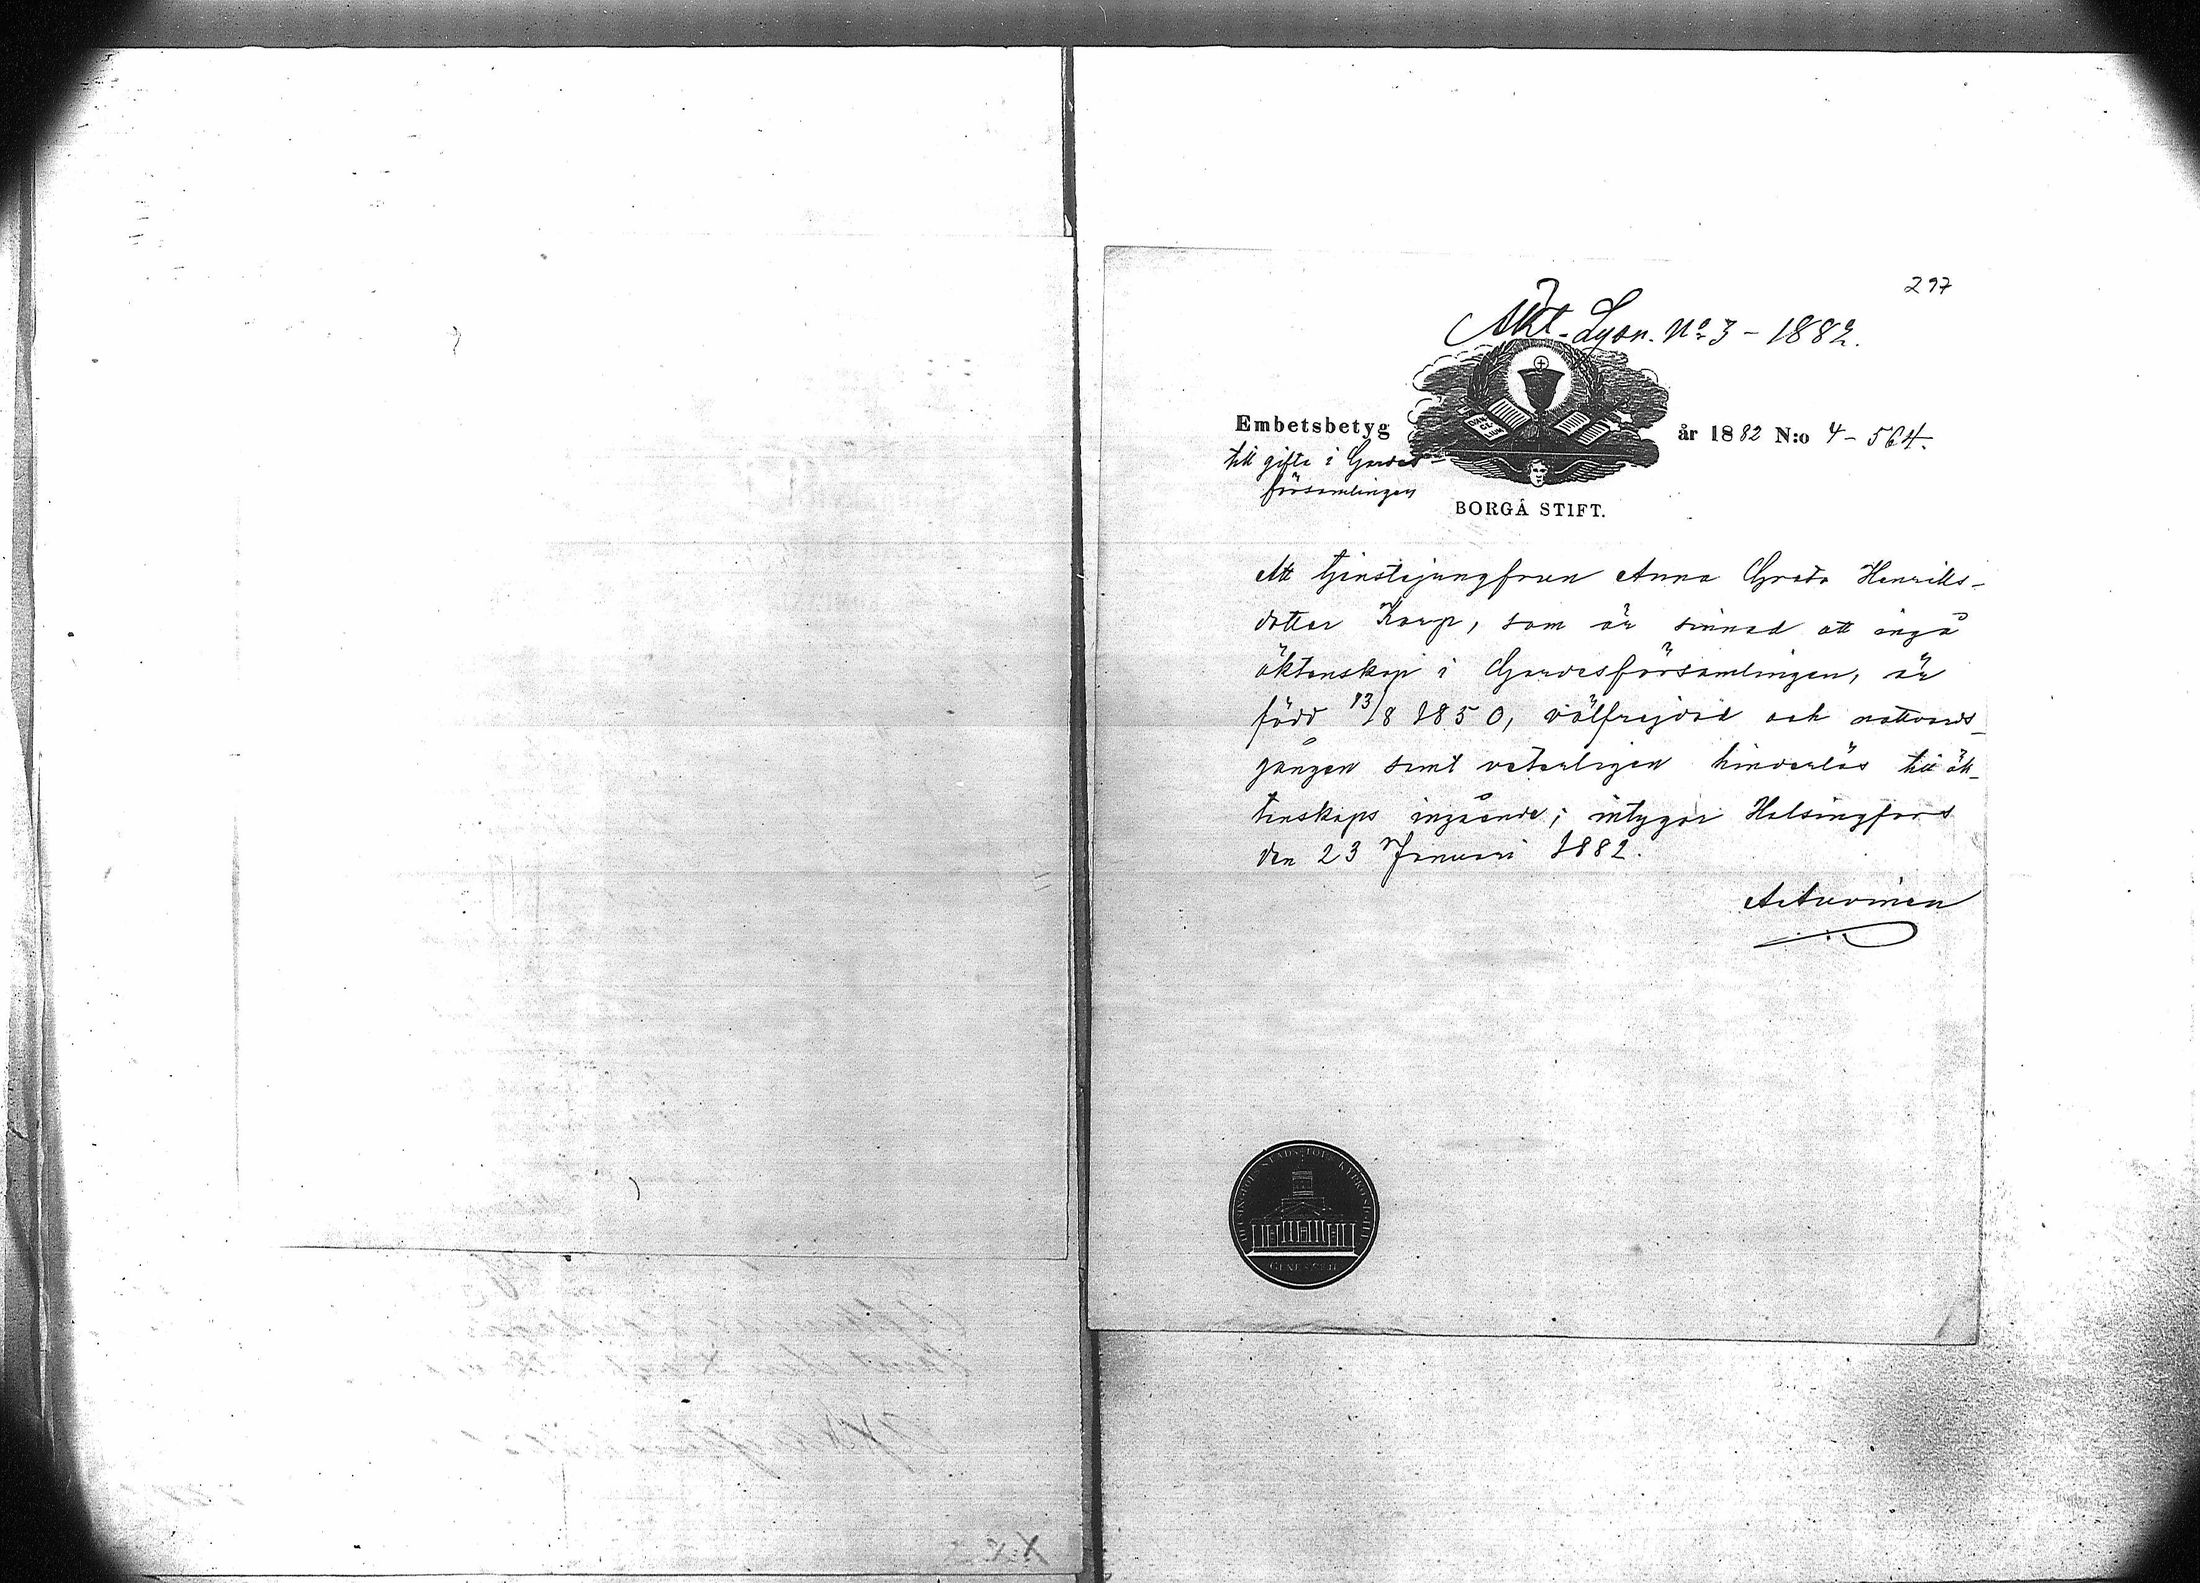 297
Akt. Lysn. No 3 – 1882.
Embetsbetyg år 1882 N:o 4 – 564.
till gifte i Gardes-
församlingen
BORGÅ STIFT.
Att tjenstejungfrun Anna Greta Henriks-
dotter Karp, som är sinnad att ingå
äktenskap i Gardesförsamlingen, är
född 13/8 1850, välfrejdad och nattvards-
gången samt veterligen hinderlös till äk-
tenskaps ingående; intygar Helsingfors
den 23 Januari 1882.